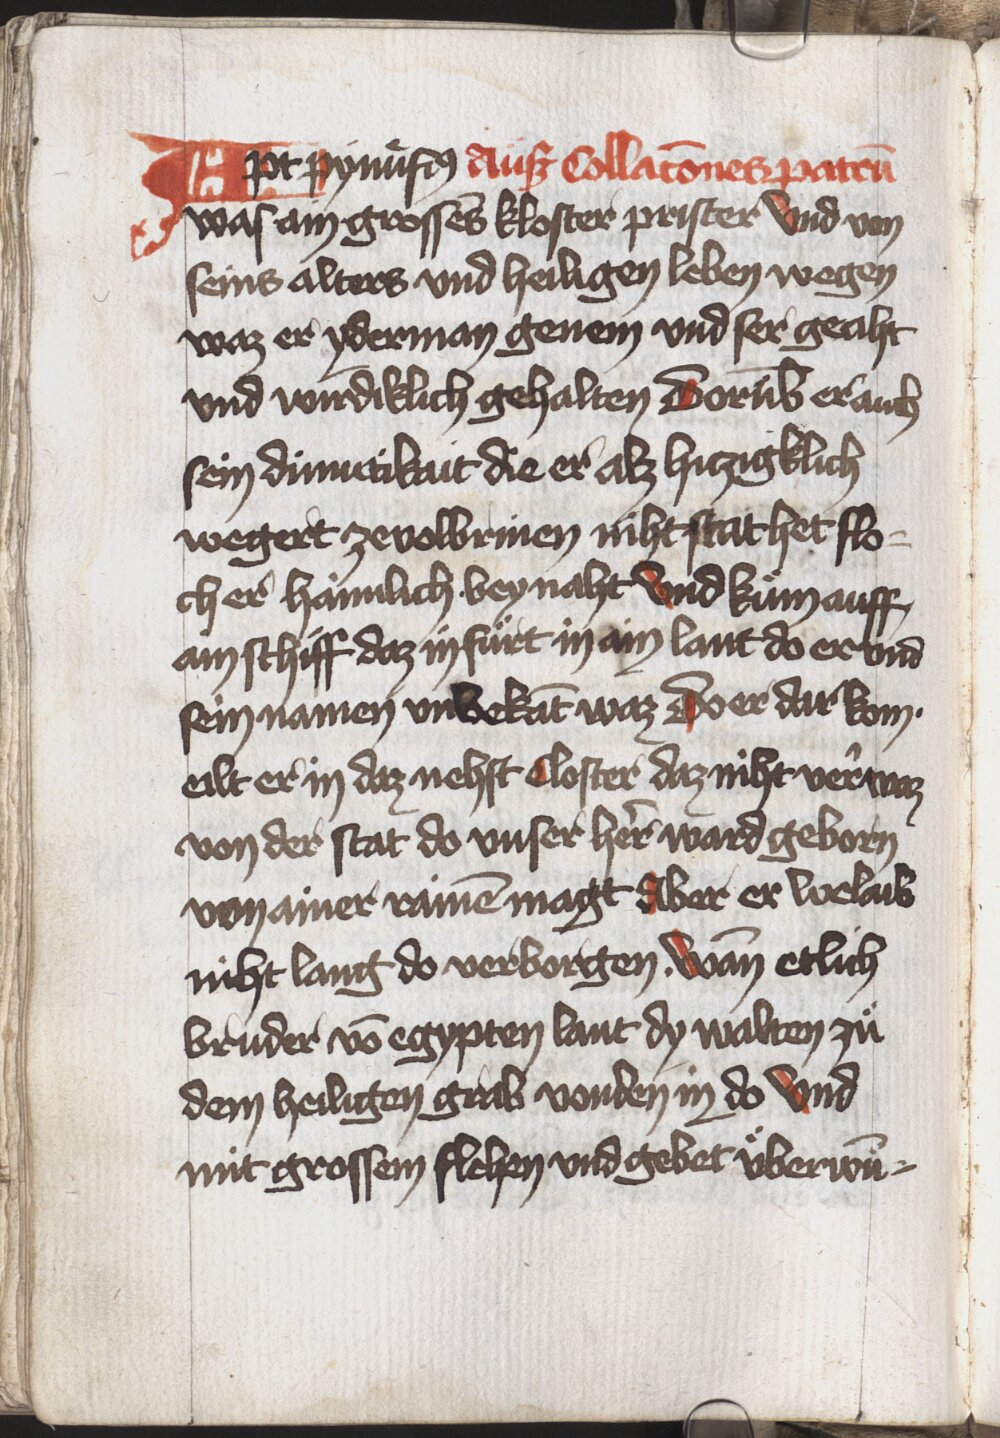 Apt pynūfꝰ Auſz Collac̄ones patrū
waſ ain groſſes kloſter prieſter Vnd von
ſeins alters vnd heiligen leben wegen
waz er yderman genem vnd ſer geaht
vnd wirdiklich gehalten Dorūb er auch
ſein dimutikait die er alz hiczigklich
wegert zevolbringen niht ſtat het flo-
ch er haimlich bey naht Vnd kům auff
ain ſchiff daz in fůrt in ain lant do er vnd
ſein namen vnbekāt waz Do er dar kom.
eilt er in daz nehſt Cloſter daz niht verr waz
von der ſtat do vnſer her̄ ward geborn
von ainer rainē magt Aber er belaib
niht lang do verborgen. Wān etlich
bruder vō egypten lant dy walten zů
dem heiligen grab vonden in do Vnd
mit groſſem flehen vnd gebet ůberwū-